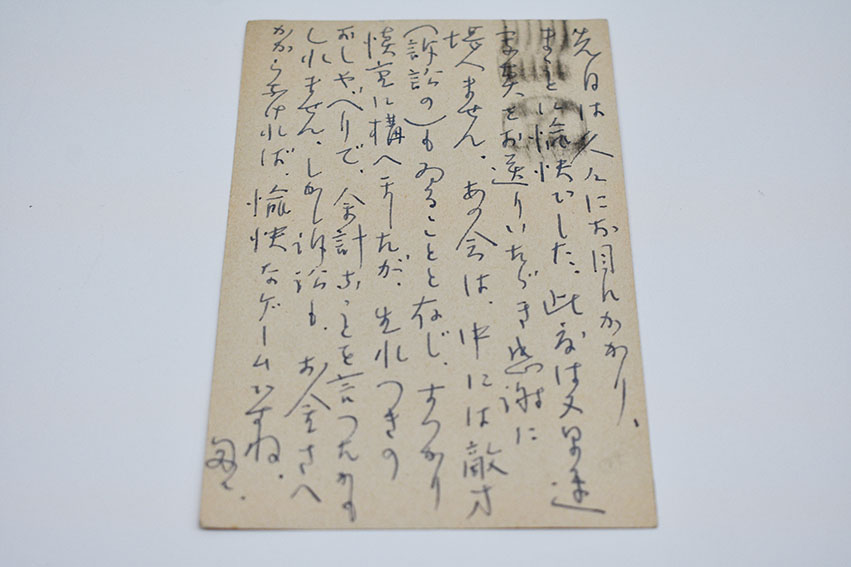 先日は久々にお目にかかり、
まことに愉快でした。此度は又早速
お送りいたゞき感謝に
堪へません。あの会は、中には敵方
(訴訟の)もゐることと存じ、すつかり
慎重に構へましたが、生れつきの
おしやべりで、余計なことを言つたかも
しれません。しかし訴訟も、お金さへ
かからなければ、愉快なゲームですね。
匆々